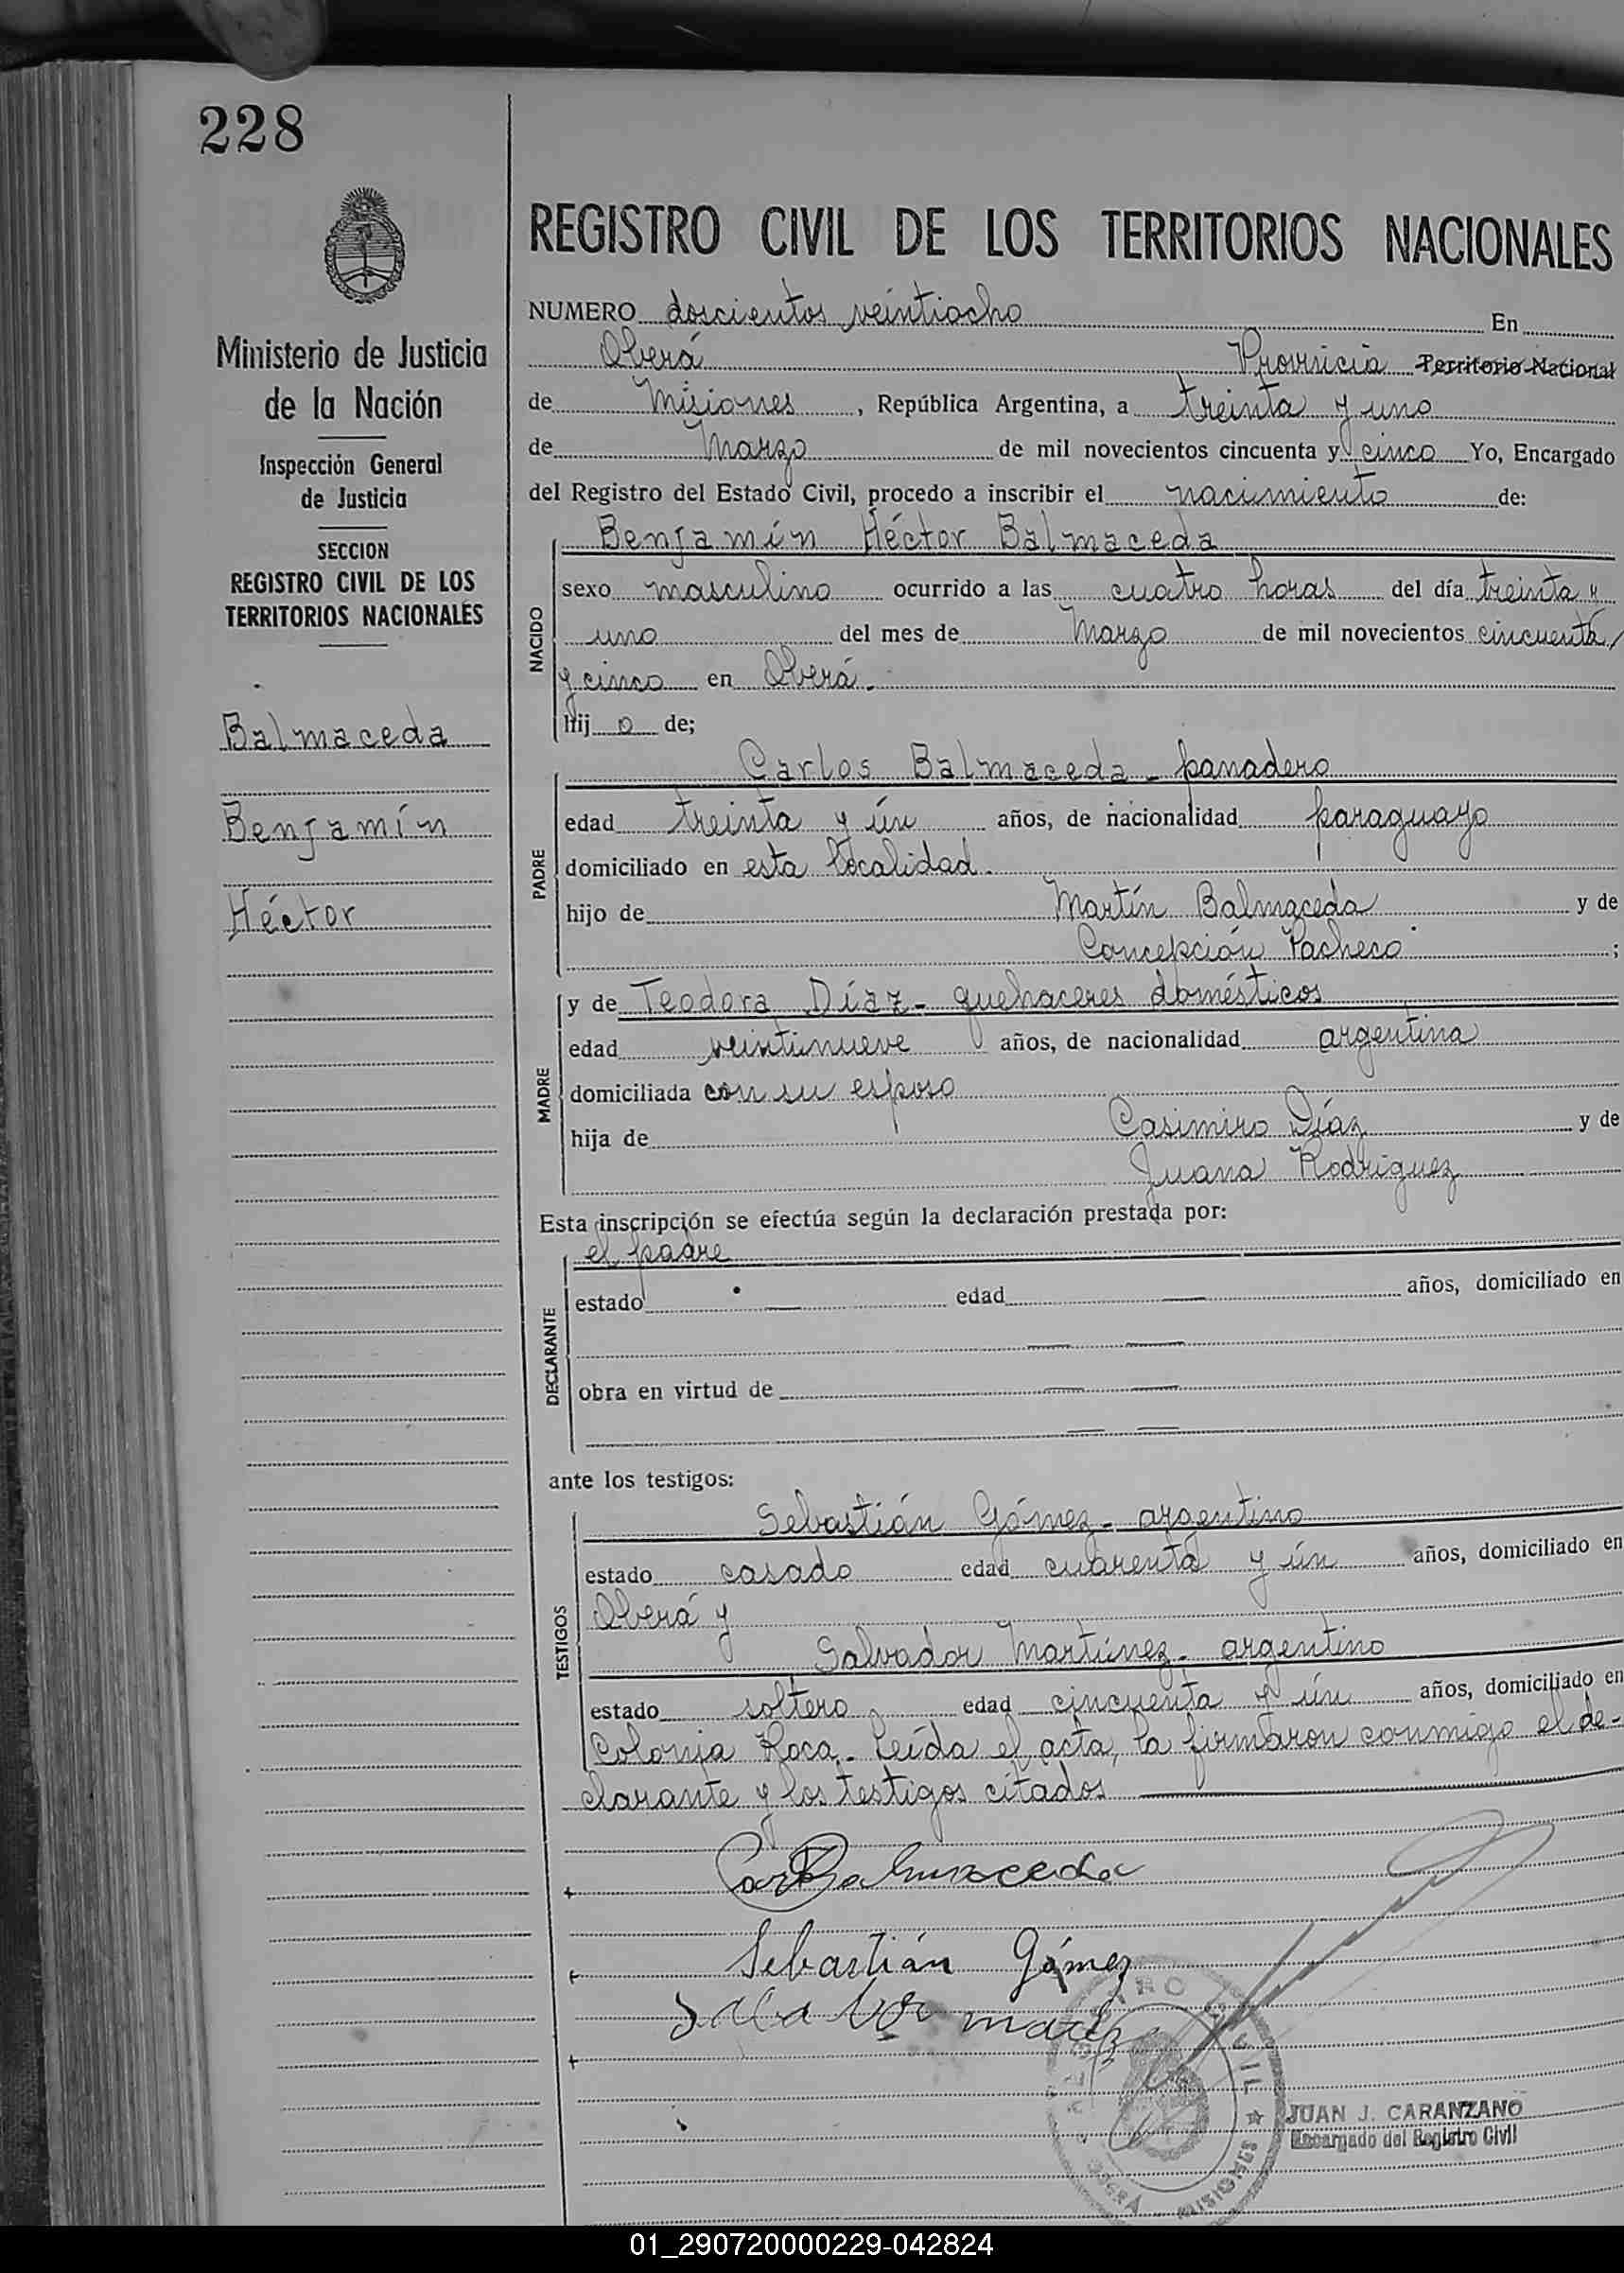 228
REGISTRO CIVIL DE LOS TERRITORIOS NACIONALES
Ministerio de Justicia
de la Nación
Inspección General
de Justicia
SECCION
REGISTRO CIVIL DE LOS
TERRITORIOS NACIONALES
Balmaceda
Benjamín
Héctor
NUMERO doscientos veintiocho En
Oberá Provincia Territorio Nacional
de Misiones, República Argentina, a treinta y uno
de Marzo de mil novecientos cincuenta y cinco Yo, Encargado
del Registro del Estado Civil, procedo a inscribir el nacimiento de:
NACIDO
Benjamín Héctor Balmaceda
sexo masculino ocurrido a las cuatro horas del día treinta y
uno del mes de Marzo de mil novecientos cincuenta
y cinco en Oberá.
hijo de;
PADRE
Carlos Balmaceda - panadero
edad treinta y ún años, de nacionalidad paraguayo
domiciliado en esta localidad.
hijo de Martín Balmaceda y de
Concepción Pacheco;
MADRE
y de Teodora Díaz - quehaceres domésticos
edad veintinueve años, de nacionalidad argentina
domiciliada con su esposo
hija de Casimiro Díaz y de
Juana Rodríguez
Esta inscripción se efectúa según la declaración prestada por:
DECLARANTE
el padre
estado — edad — años, domiciliado en
— —
obra en virtud de — —
— —
ante los testigos:
TESTIGOS
Sebastián Gómez - argentino
estado casado edad cuarenta y ún años, domiciliado en
Oberá y
Salvador Martínez - argentino
estado soltero edad cincuenta y ún años, domiciliado en
Colonia Roca. Leída el acta, la firmaron conmigo el de-
clarante y los testigos citados
Balmaceda
Sebastián Gómez
REGISTRO CIVIL
OBERÁ MISIONES
JUAN J. CARANZANO
Encargado del Registro Civil
01_290720000229-042824